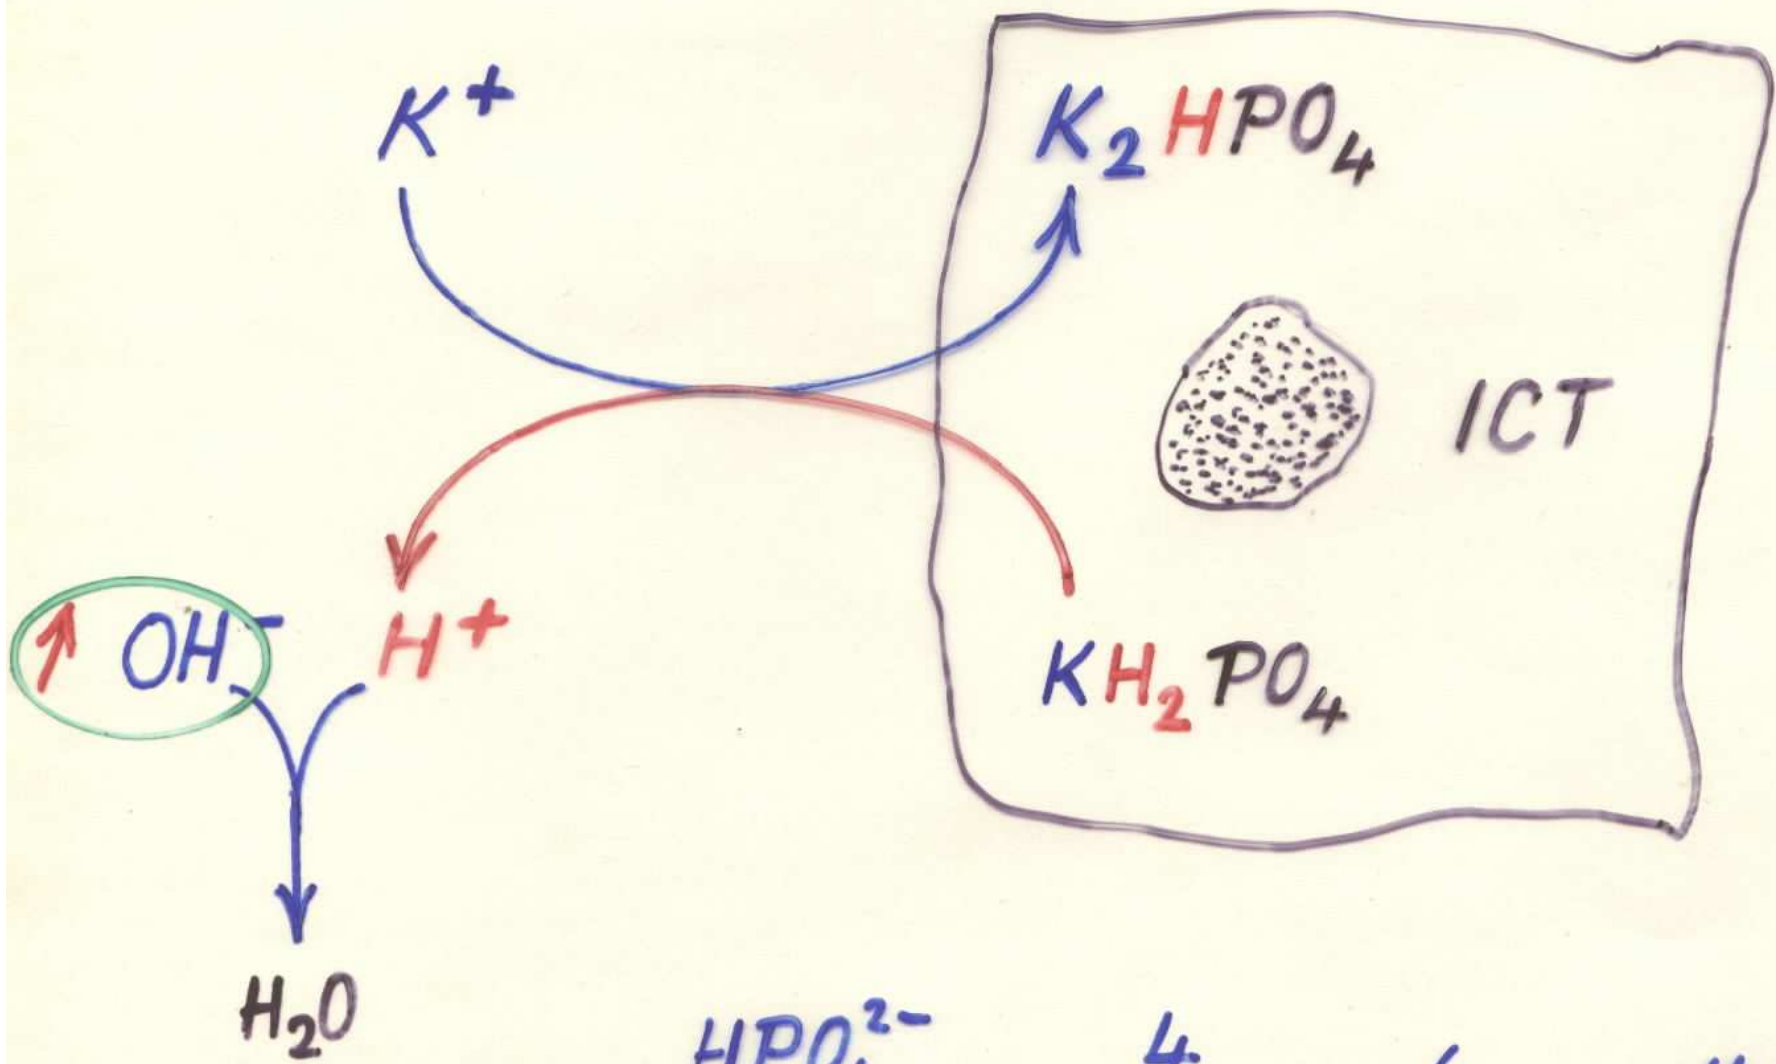 K⁺ K₂HPO₄
ICT
↑ OH⁻ H⁺ KH₂PO₄
H₂O
HPO₄²⁻ 4